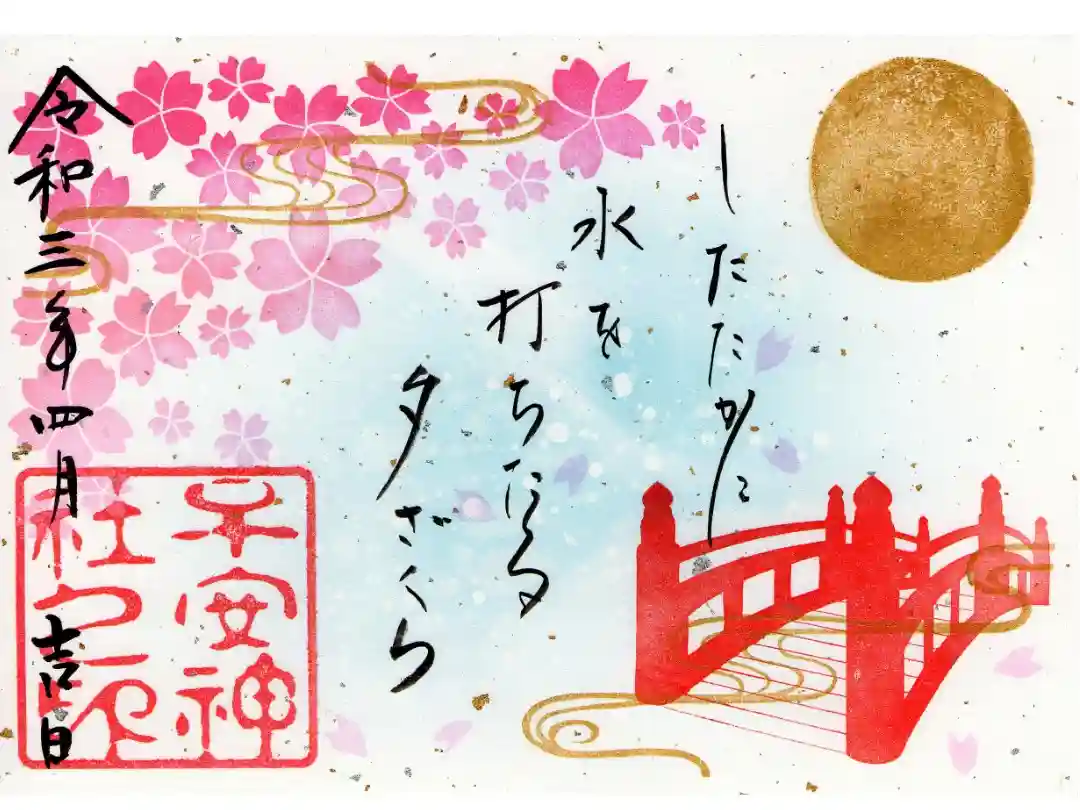 したたかに
水を
打ちたる
夕ざくら
令和三年四月吉日
子安神
社之印